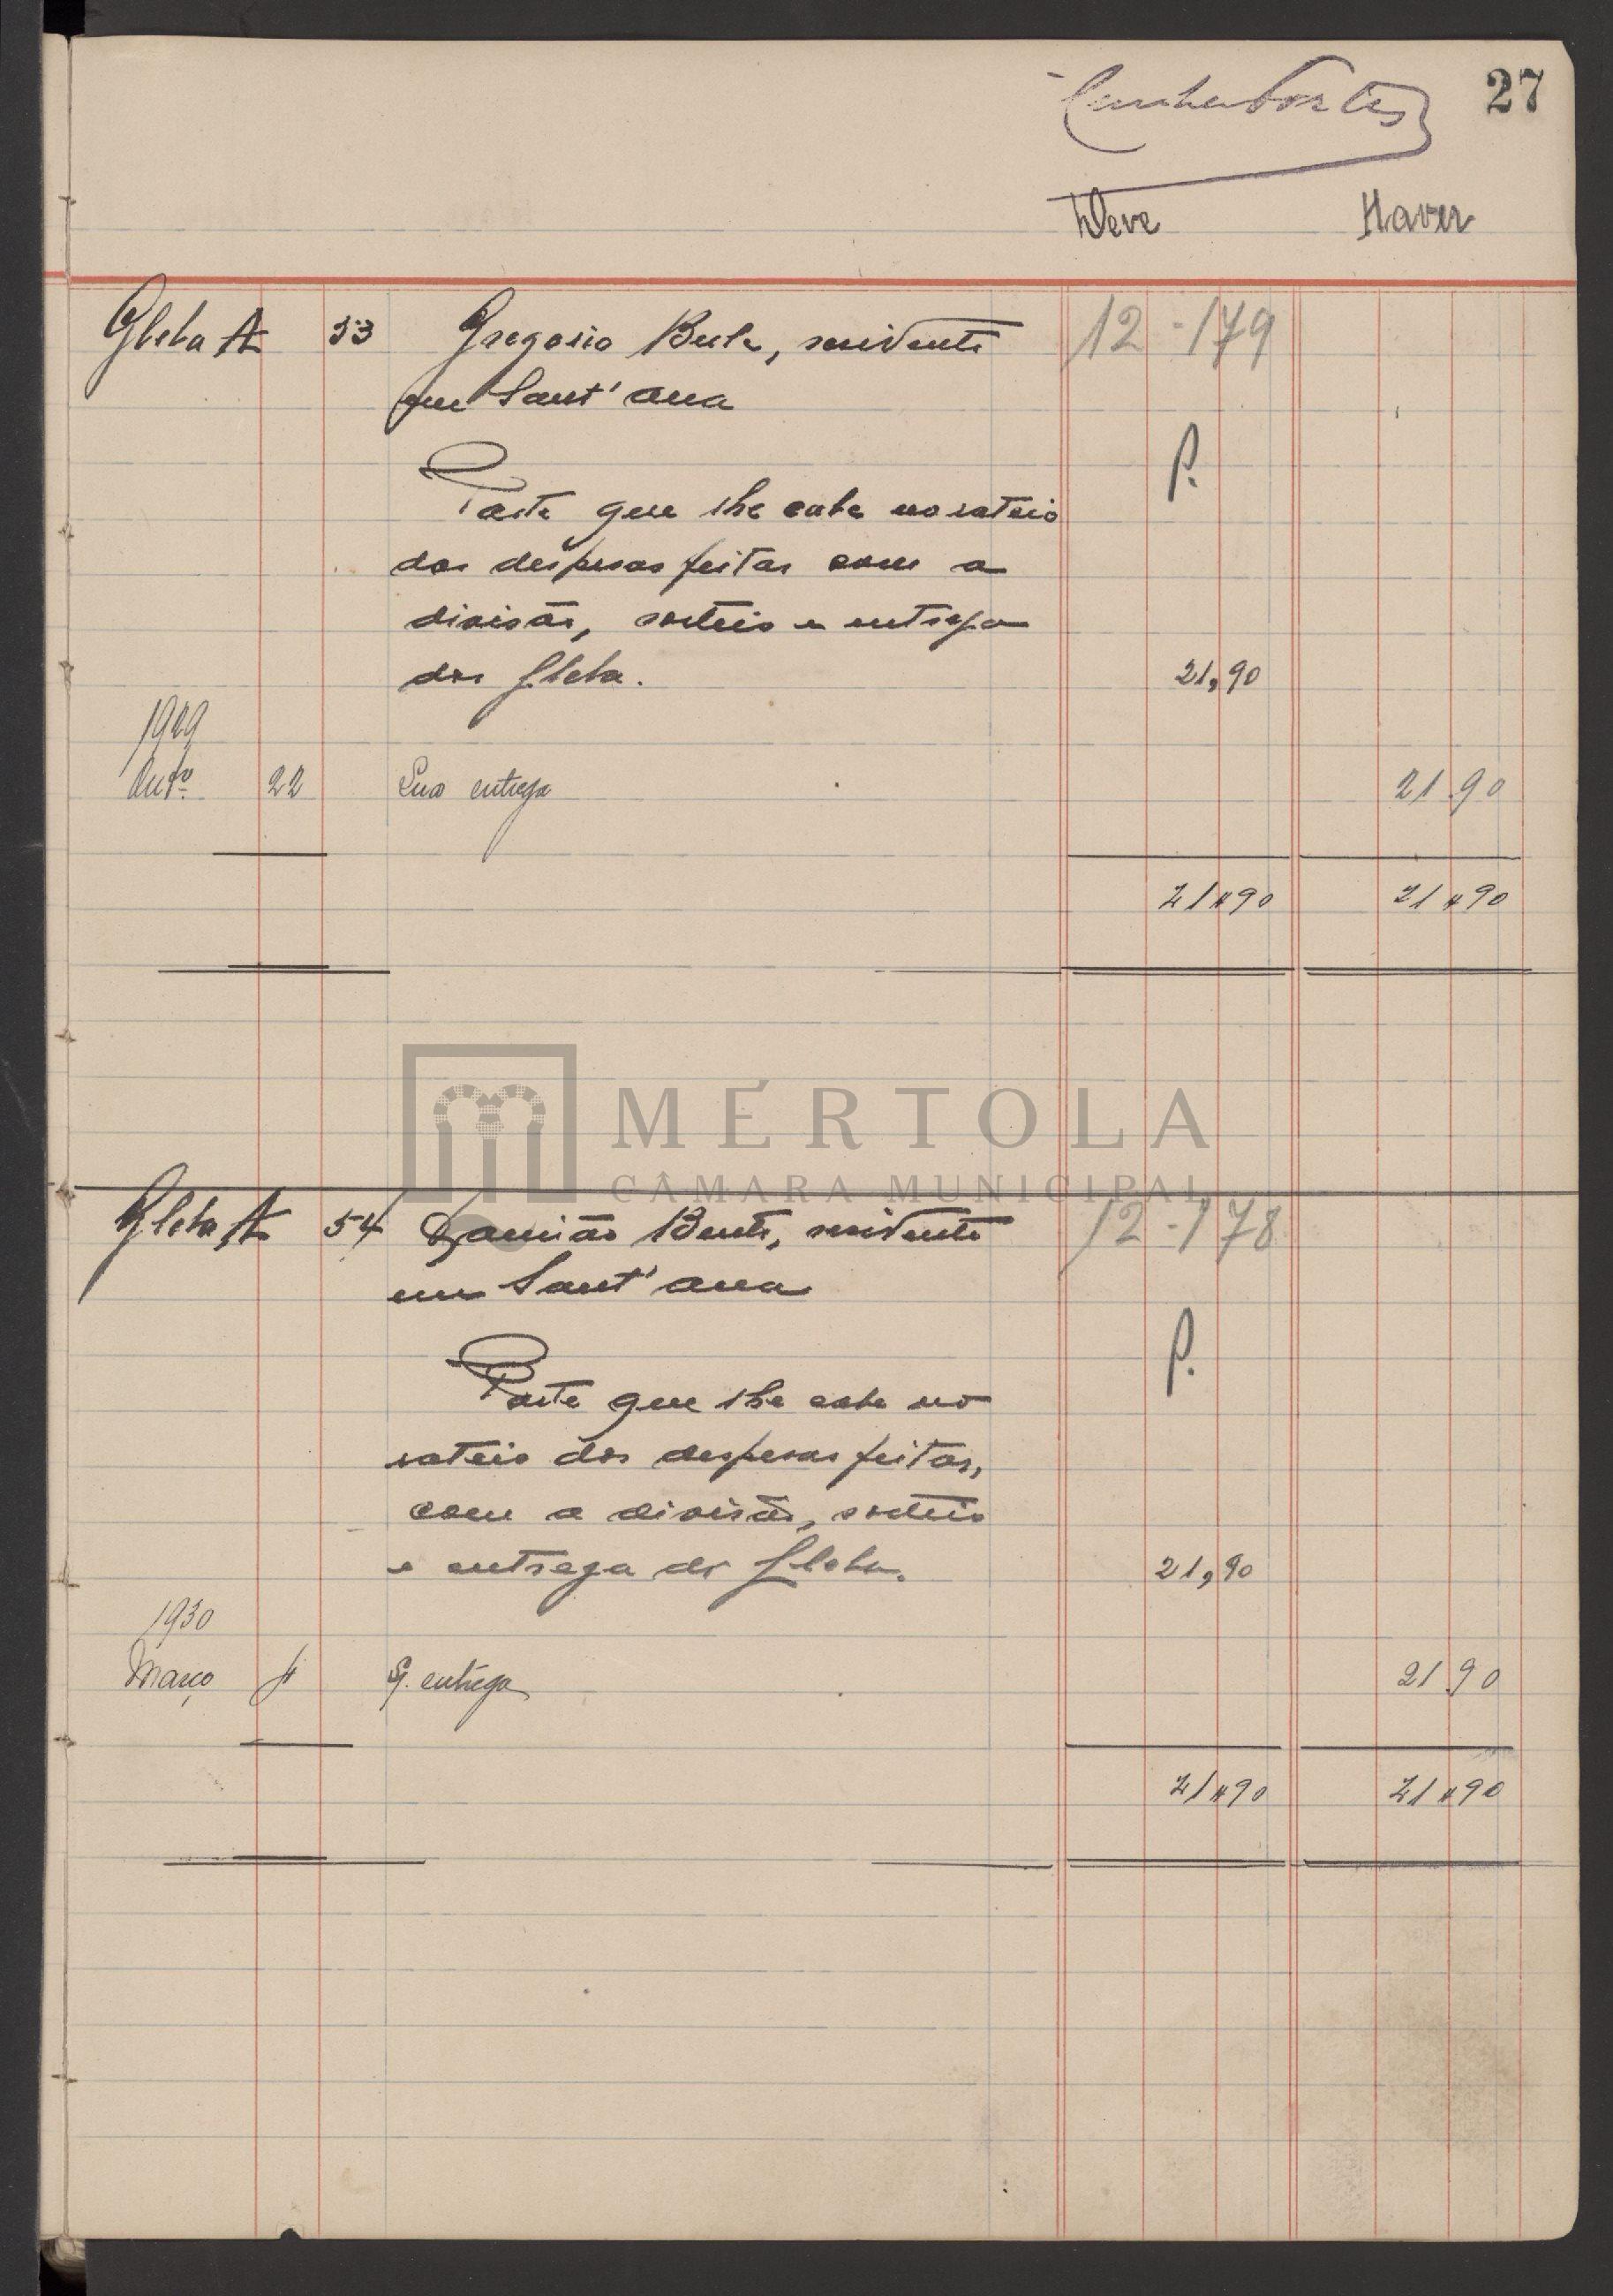 27
Deve Haver
Gleba A 53 Gregorio Bule, residente 12-179
em Sant'ana
P.
Parte que lhe cabe no rateio
das despesas feitas com a
divisão, sorteio e entrega
da gleba. 21,90
1929
Outº 22 Sua entrega 21.90
21$90 21$90
MÉRTOLA
CÂMARA MUNICIPAL
Gleba A 54 Damião Bento, residente 12-178
em Sant'ana
P.
Parte que lhe cabe no
rateio das despesas feitas,
com a divisão, sorteio
e entrega da gleba. 21,90
1930
Março S. entrega 21.90
21$90 21$90